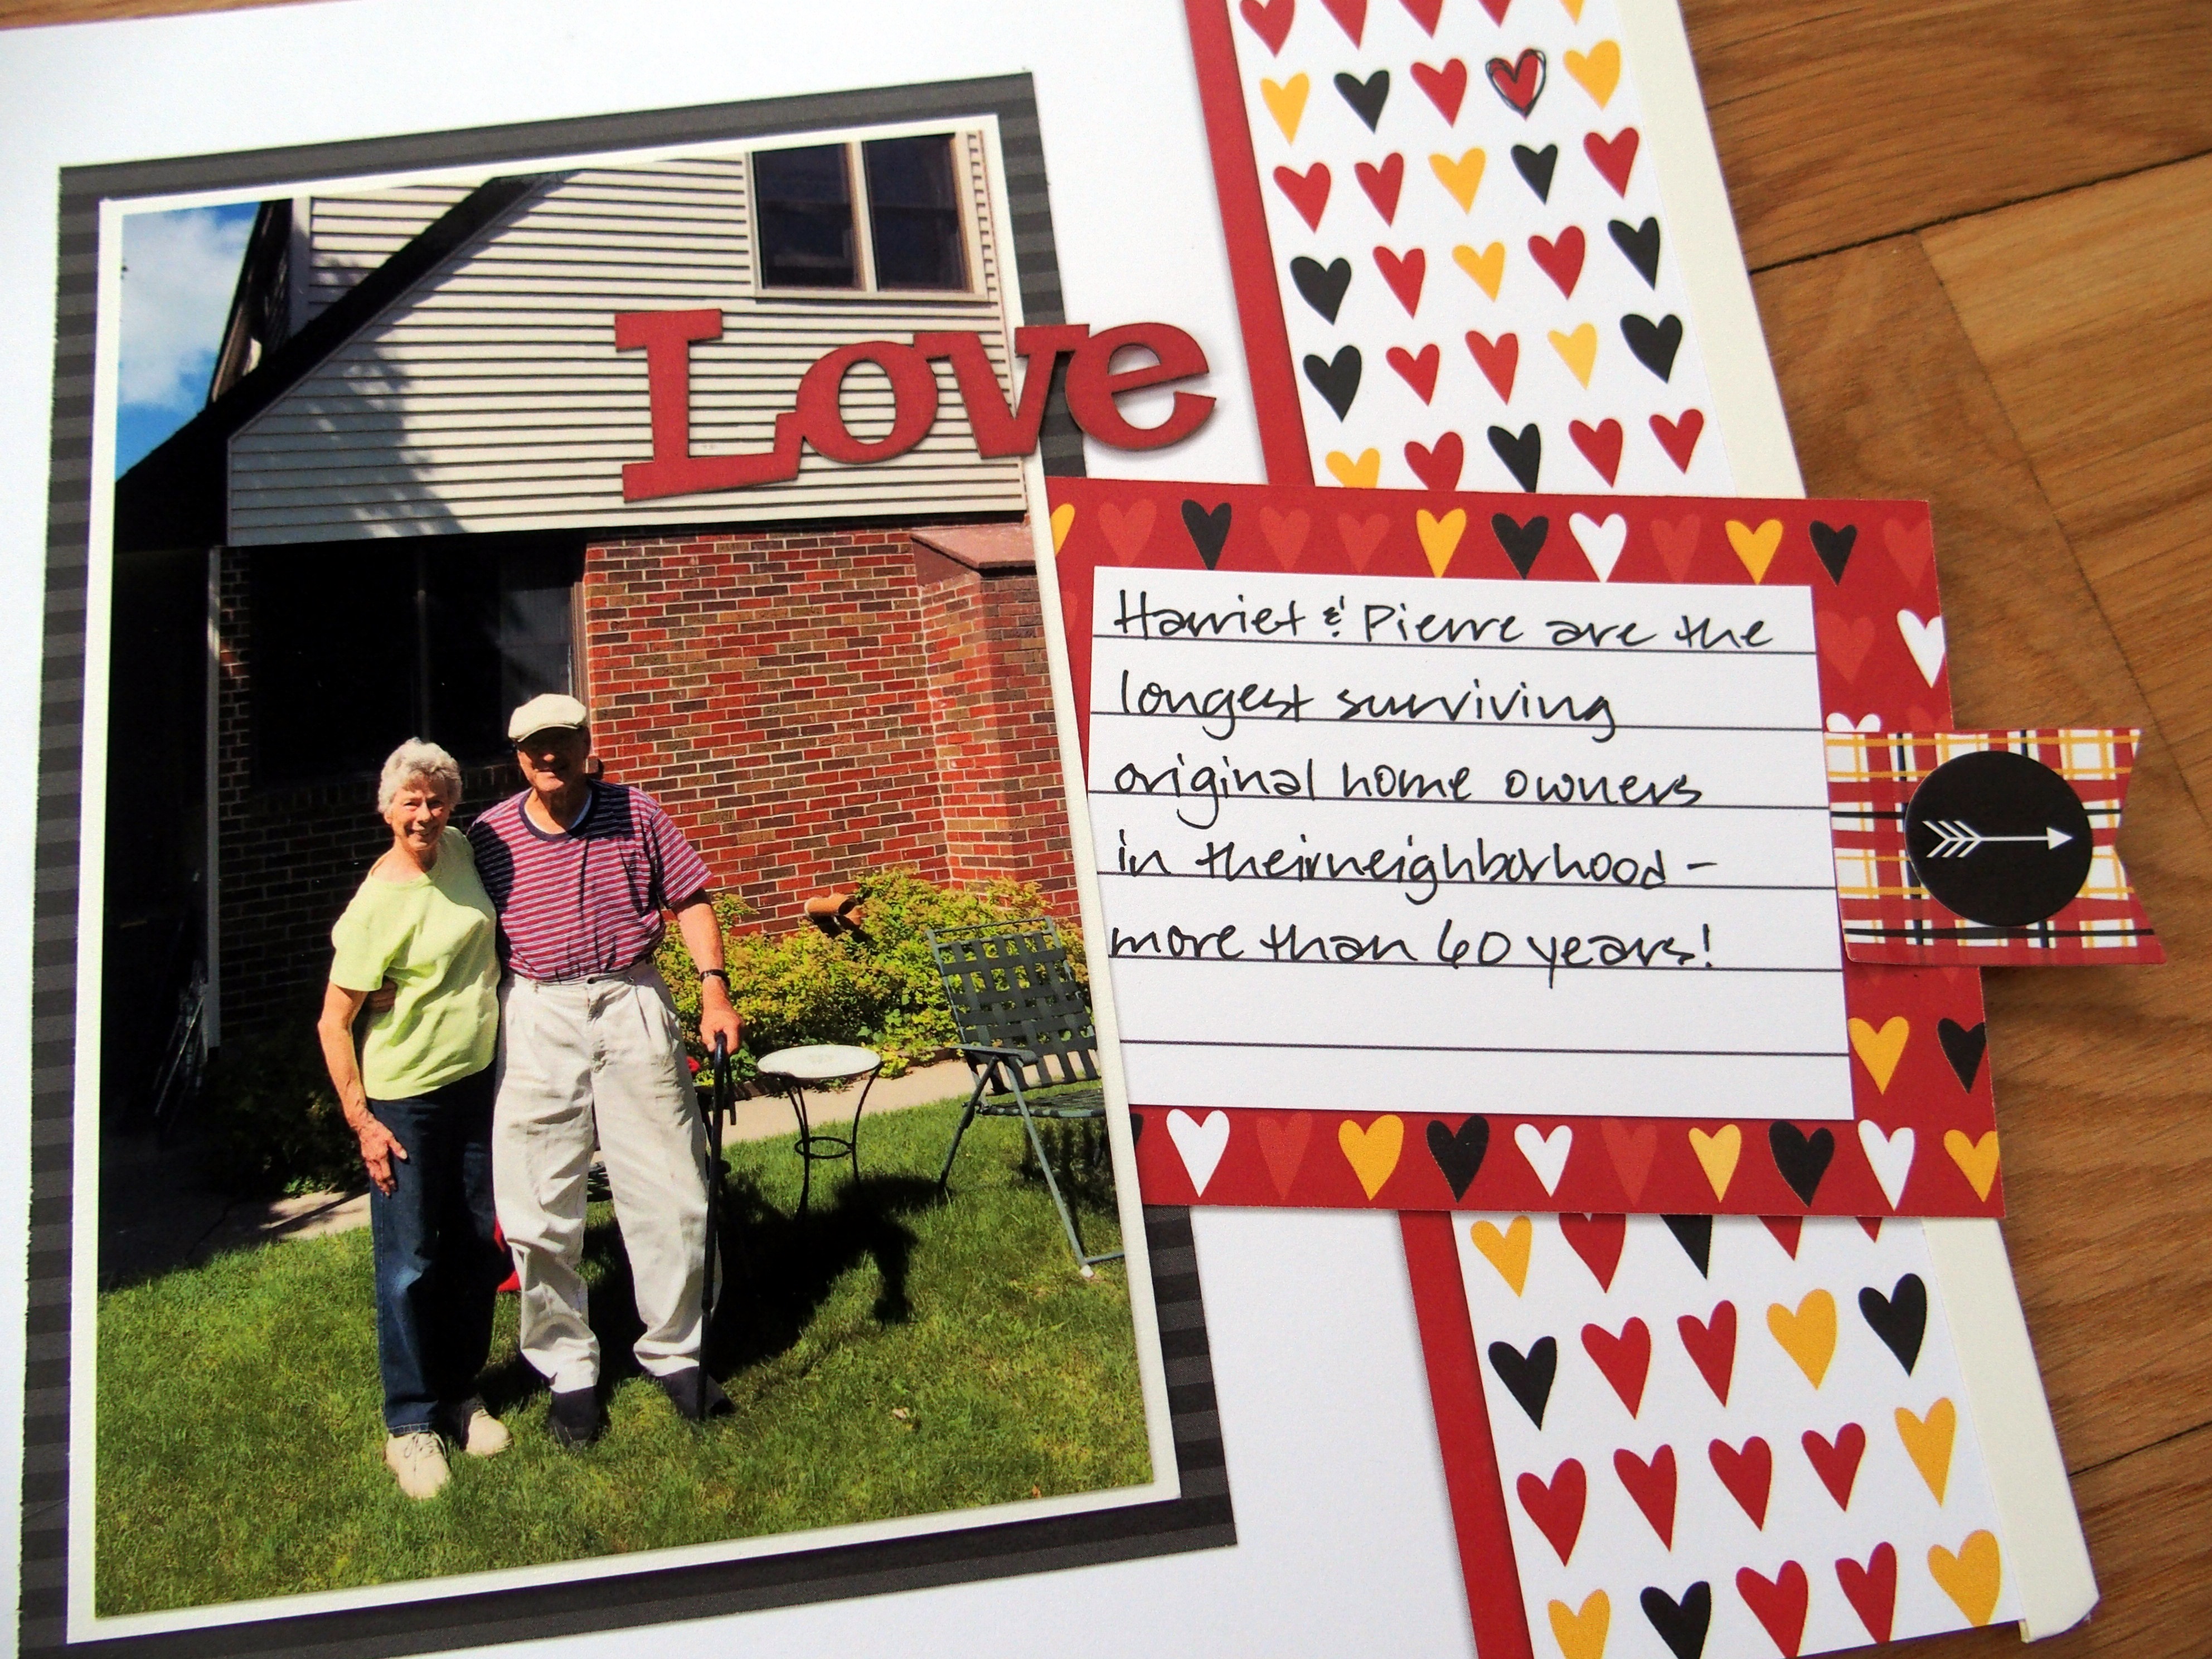 Love
Harriet & Pierre are the
longest surviving
original home owners
in their neighborhood -
more than 60 years!